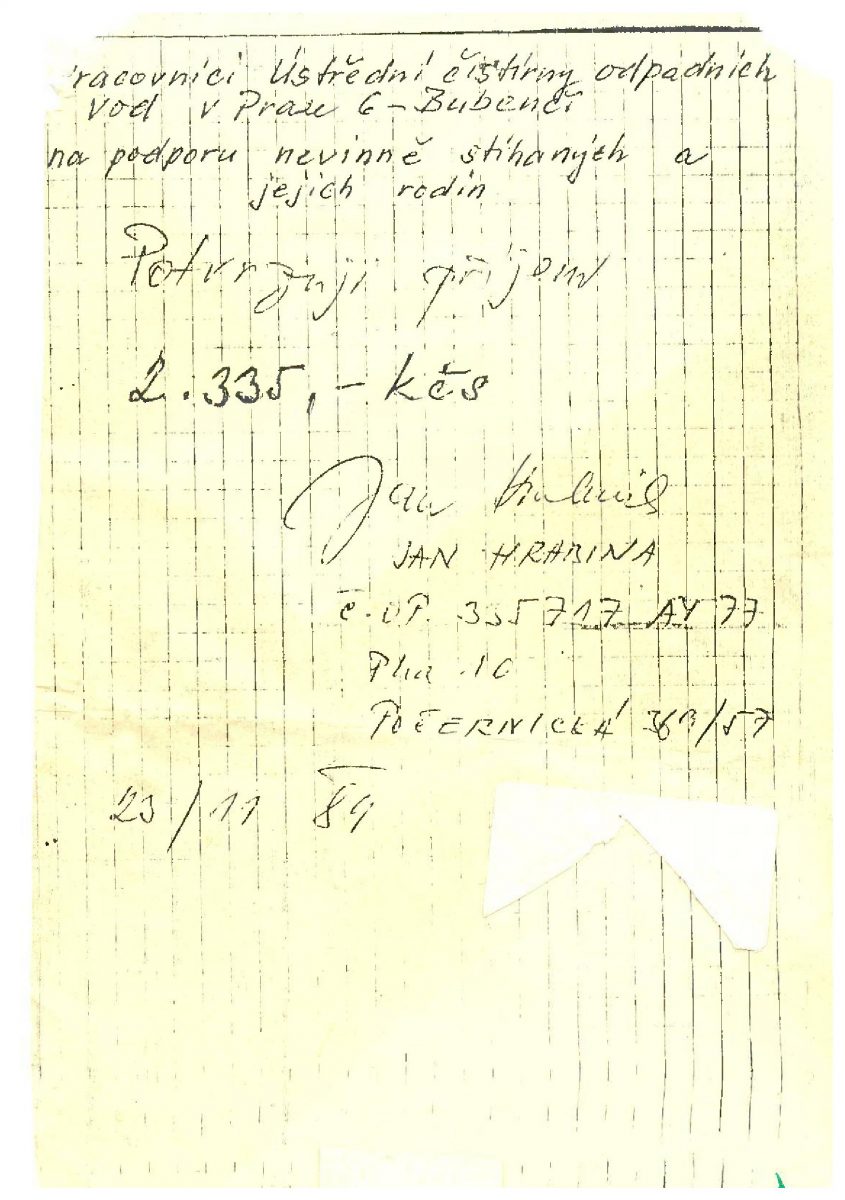 racovníci Ústřední čistírny odpadních
vod v Praze 6 - Bubenči
na podporu nevinně stíhaných a
jejich rodin
Potvrzuji příjem
2.335,- kčs
Jan Hrabina
JAN HRABINA
č. OP. 335717 AY 77
Pha 10
POČERNICKÁ /57
23/11 89